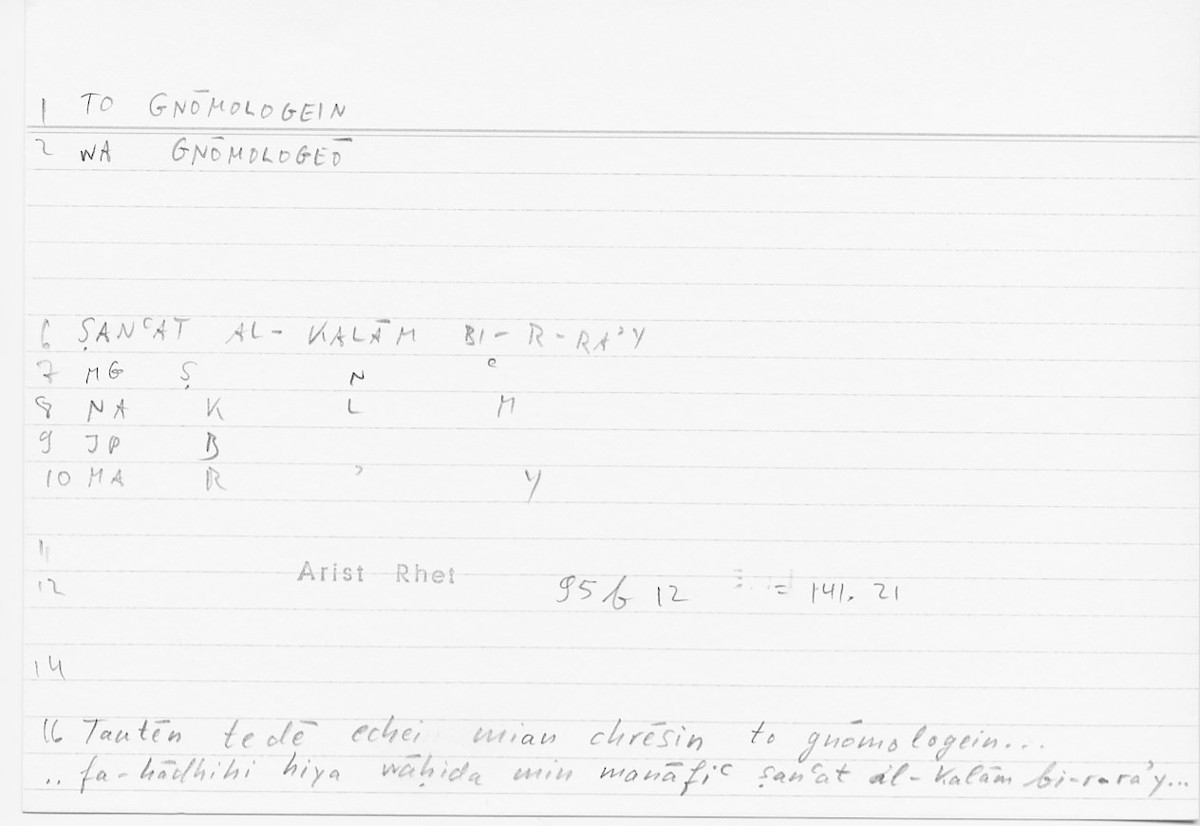 1 TO GNŌMOLOGEIN
2 WA GNŌMOLOGEŌ
6 ṢANʿAT AL- KALĀM BI- R-RAʾY
7 MG Ṣ N ʿ
8 NA K L M
9 JP B
10 MA R ʾ Y
11
12 Arist Rhet 95 b 12 = 141. 21
14
16 Tautēn te dē echei mian chrēsin to gnōmologein...
.. fa-hādhihi hiya wāḥida min manāfiʿ ṣanʿat al-Kalām bi-r-raʾy...